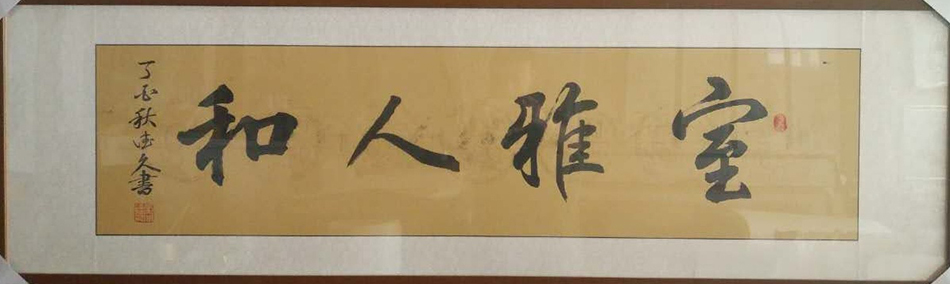 室雅人和
丁酉秋德久書